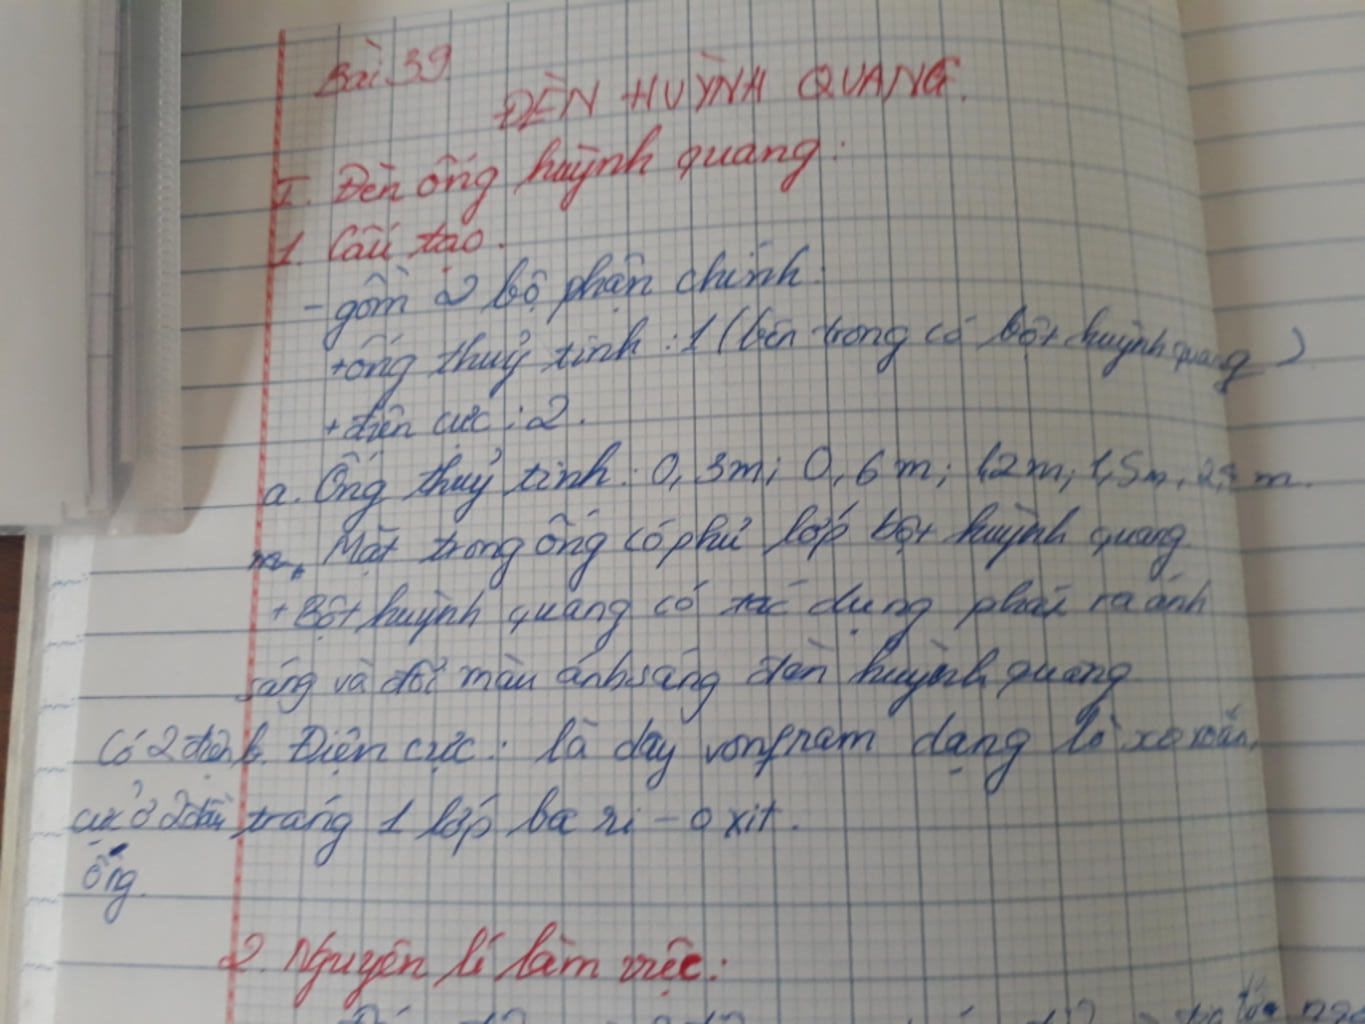 Bài 39
ĐÈN HUỲNH QUANG.
I. Đèn ống huỳnh quang:
1. Cấu tạo.
- gồm 2 bộ phận chính:
+ống thuỷ tinh: 1 (bên trong có bột huỳnh quang)
+điện cực: 2.
a. Ống thuỷ tinh: 0,3m; 0,6m; 1,2m; 1,5m, m.
Mặt trong ống có phủ lớp bột huỳnh quang
+ Bột huỳnh quang có tác dụng phát ra ánh
sáng và đổi màu ánh sáng đèn huỳnh quang
b. Điện cực: là dây vonfram dạng lò xo xoắn,
tráng 1 lớp ba ri - oxit.
Có 2 điện
cực ở 2 đầu
ống.
2. Nguyên lí làm việc: